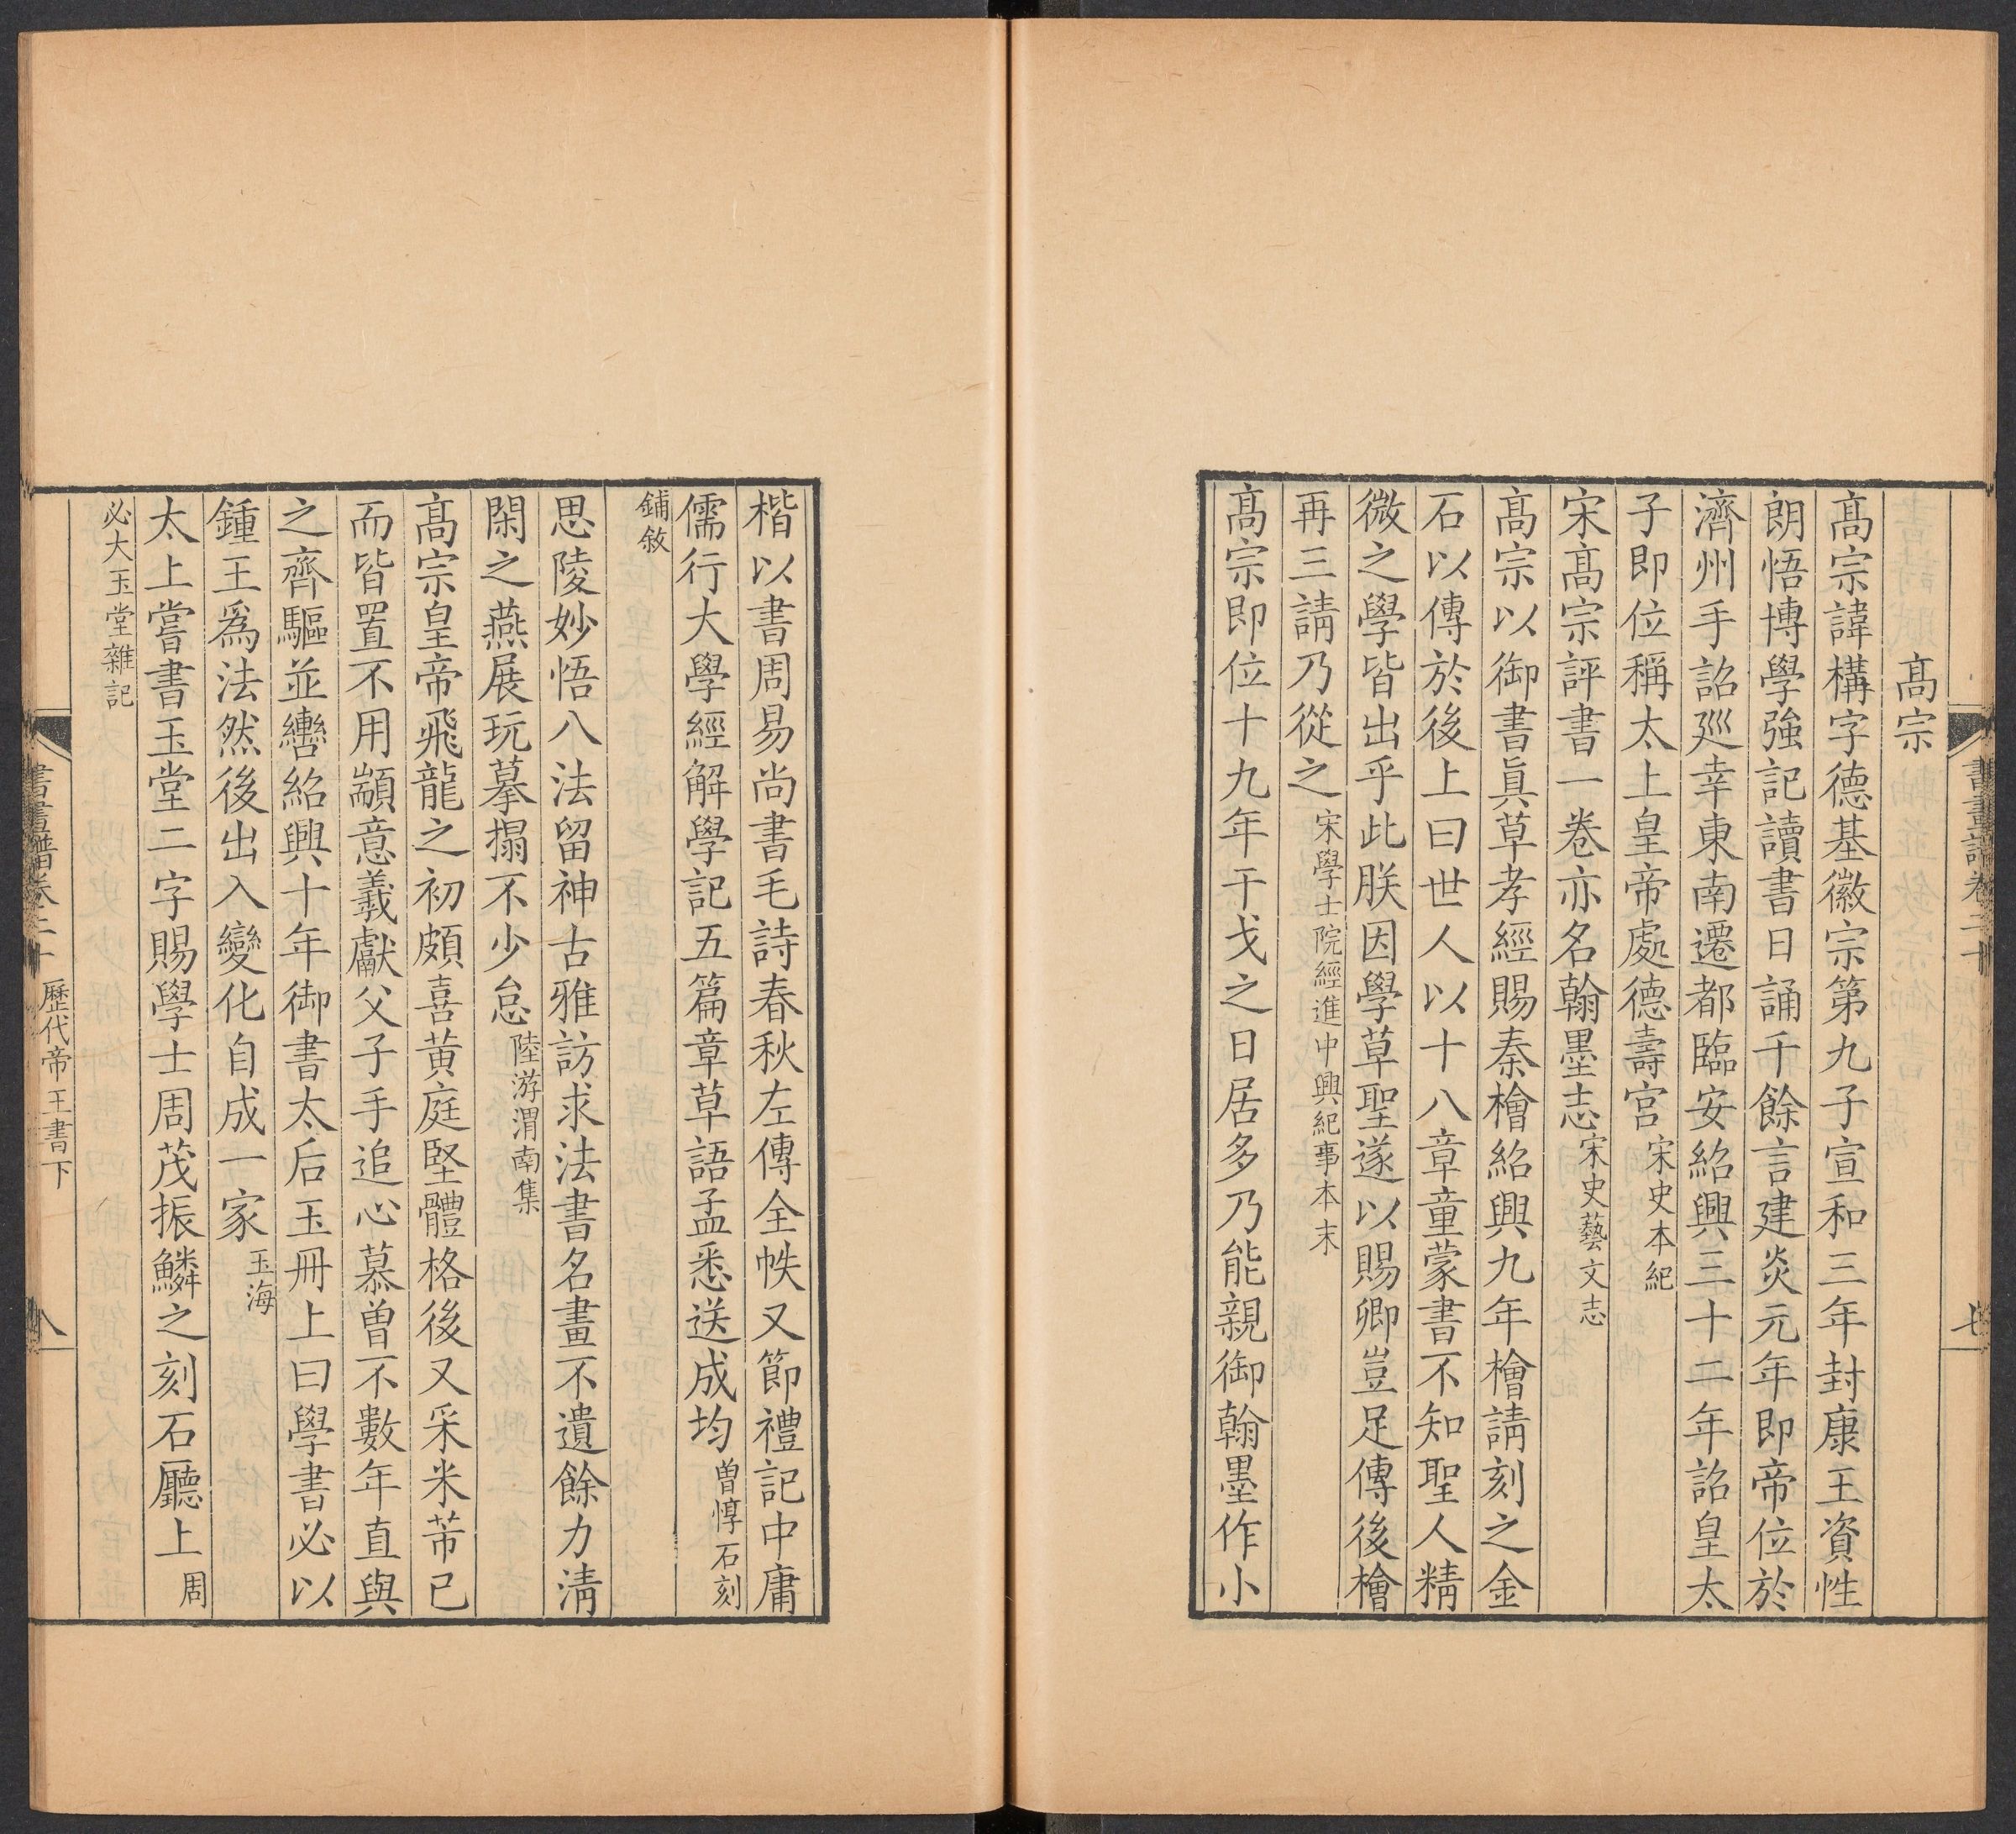 書畫譜卷二十
七
高宗
高宗諱構字德基徽宗第九子宣和三年封康王資性
朗悟博學強記讀書日誦千餘言建炎元年即帝位於
濟州手詔廵幸東南遷都臨安紹興三十二年詔皇太
子即位稱太上皇帝處德壽宮宋史本紀
宋髙宗評書一卷亦名翰墨志宋史藝文志
髙宗以御書眞草孝經賜秦檜紹興九年檜請刻之金
石以傳於後上曰世人以十八章童蒙書不知聖人精
微之學皆出乎此朕因學草聖遂以賜卿豈足傳後檜
再三請乃從之宋學士院經進中興紀事本末
髙宗即位十九年干戈之日居多乃能親御翰墨作小
楷以書周易尚書毛詩春秋左傳全帙又節禮記中庸
儒行大學經解學記五篇章草語孟悉送成均曾惇石刻
鋪敘
思陵妙悟八法留神古雅訪求法書名畫不遺餘力清
閑之燕展玩摹搨不少怠陸游渭南集
髙宗皇帝飛龍之初頗喜黄庭堅體格後又采米芾已
而皆置不用顓意羲獻父子手追心慕曾不數年直與
之齊驅並轡紹興十年御書太后玉冊上曰學書必以
鍾王爲法然後出入變化自成一家玉海
太上嘗書玉堂二字賜學士周茂振鱗之刻石廳上周
必大玉堂雜記
書畫譜卷二十 歷代帝王書下
八